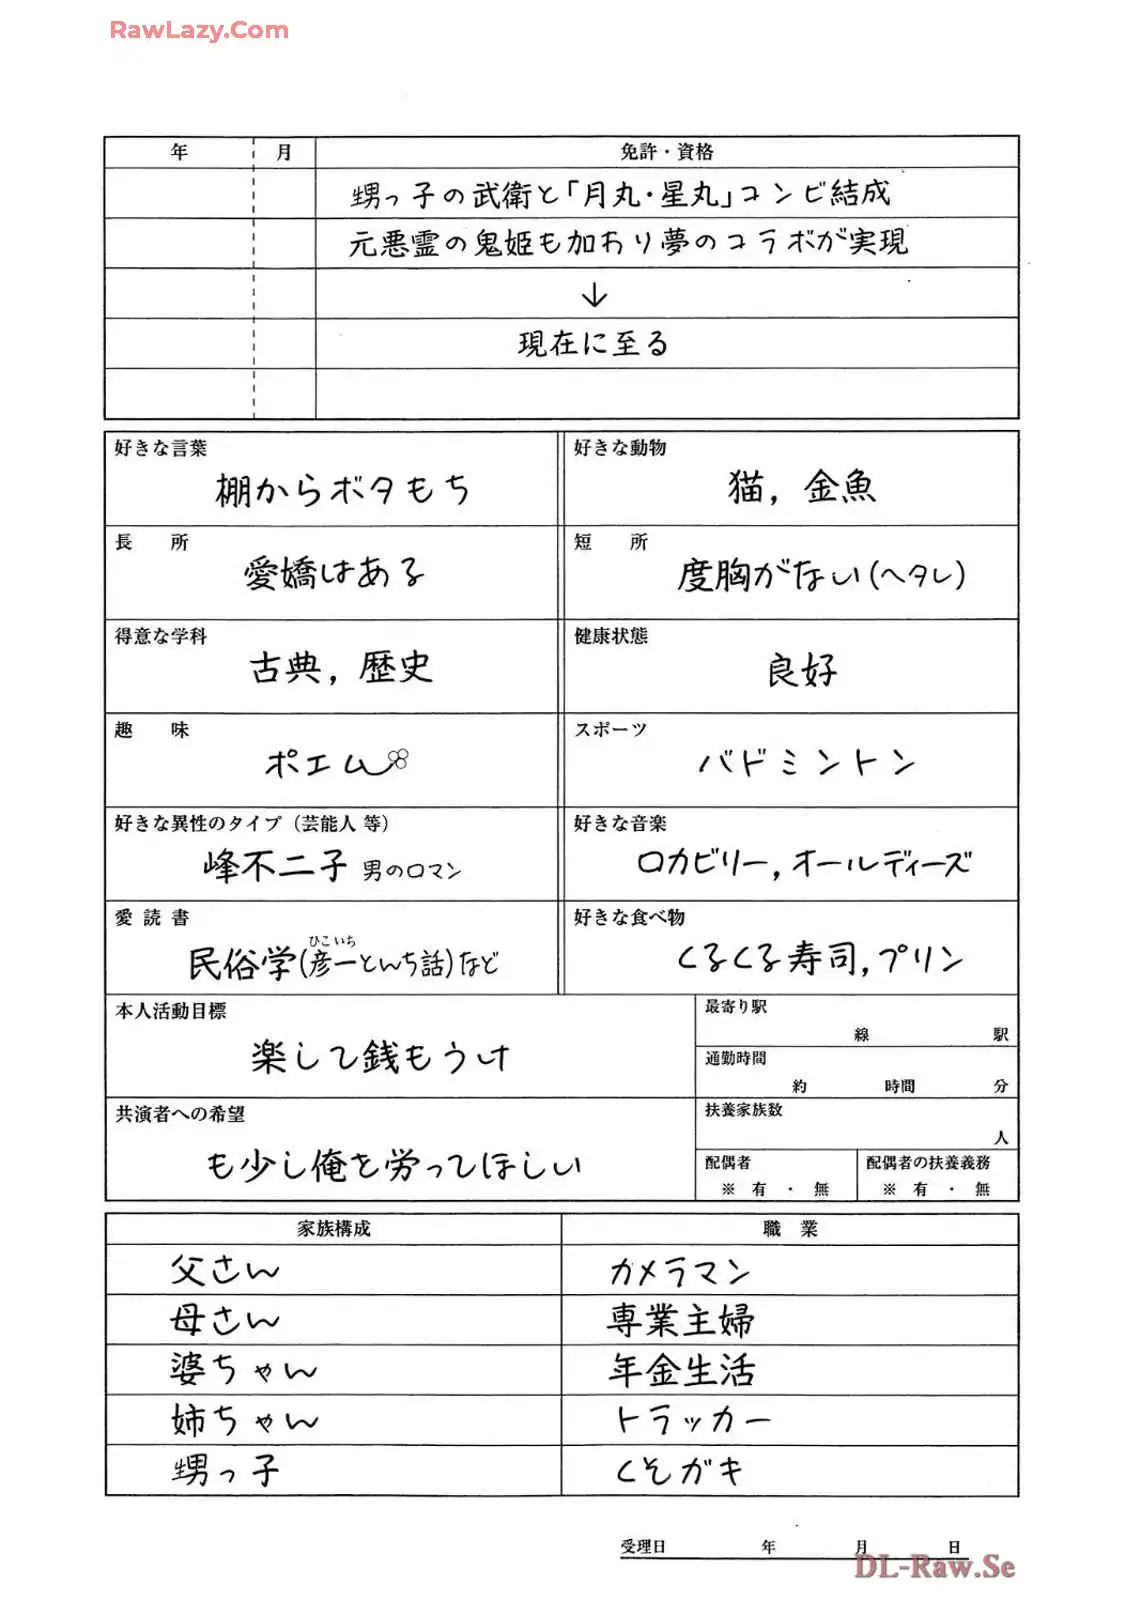 RawLazy.Com
年 月 免許・資格
甥っ子の武衛と「月丸・星丸」コンビ結成
元悪霊の鬼姫も加わり夢のコラボが実現
↓
現在に至る
好きな言葉
棚からボタもち
好きな動物
猫, 金魚
長 所
愛嬌はある
短 所
度胸がない(ヘタレ)
得意な学科
古典, 歴史
健康状態
良好
趣 味
ポエム
スポーツ
バドミントン
好きな異性のタイプ（芸能人 等）
峰不二子 男のロマン
好きな音楽
ロカビリー, オールディーズ
愛 読 書
ひこいち
民俗学(彦一とんち話)など
好きな食べ物
くるくる寿司, プリン
本人活動目標
楽して銭もうけ
最寄り駅
線 駅
通勤時間
約 時間 分
共演者への希望
も少し俺を労ってほしい
扶養家族数
人
配偶者
※ 有 ・ 無
配偶者の扶養義務
※ 有 ・ 無
家族構成 職 業
父さん カメラマン
母さん 専業主婦
婆ちゃん 年金生活
姉ちゃん トラッカー
甥っ子 くそガキ
受理日 年 月 日
DL-Raw.Se